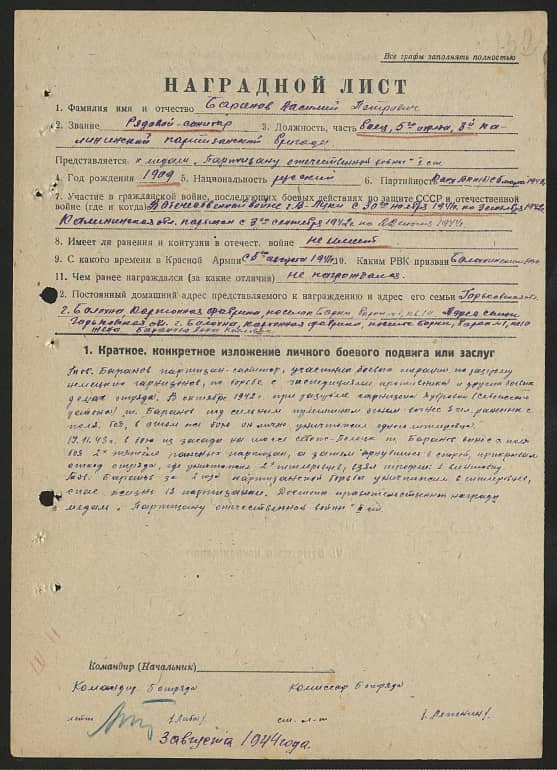 Все графы заполнять полностью
НАГРАДНОЙ ЛИСТ
1. Фамилия имя и отчество Баранов Василий Петрович
2. Звание Рядовой-санитар 3. Должность, часть боец, 5го отряда, 3й Ка-
лининской партизанской бригады
Представляется к медали „Партизану отечественной войны" II ст.
4. Год рождения 1909 5. Национальность русский 6. Партийность
7. Участие в гражданской войне, последующих боевых действиях по защите СССР и отечественной
войне (где и когда) В Отечественной войне г. В-Луки с 30го ноября 1941г. по 3 сентября 1942г.
Калининская обл. партизан с 3го сентября 1942г. по 1944г.
8. Имеет ли ранения и контузии в отечест. войне не имеет
9. С какого времени в Красной Армии с 5го августа 1941г. 10. Каким РВК призван Балахнинским РВК
11. Чем ранее награждался (за какие отличия) не награждался.
2. Постоянный домашний адрес представляемого к награждению и адрес его семьи Горьковская обл.
г. Балахна, Картонная фабрика, поселок Борки, Адрес семьи
Горьковская обл. г. Балахна, картонная фабрика, поселок Борки,
жена Баранова Анна
1. Краткое, конкретное изложение личного боевого подвига или заслуг
Тов. Баранов партизан-санитар, участник боевых операций по разгрому
немецких гарнизонов, по борьбе с экспедициями противника и других боевых
делах отряда. В октябре 1942г. при разгроме гарнизона Дубровки (Себежского
района) т. Баранов под сильным пулеметным огнем вынес 3 чел. раненых с
поля боя, в этом же бою он лично уничтожил одного немца.
17.11.43г. в бою из засады на шоссе Себеж-Полоцк т. Баранов вынес с поля
боя 2х тяжело раненых партизан, а затем вернулся в строй, прикрывая
отход отряда, где уничтожил 2х гитлеровцев, взял трофеи: 1 винтовку
Тов. Баранов за 2 года партизанской борьбы уничтожил гитлеровцев,
спас жизнь 13 партизанам. Достоин правительственной награды
медаль „Партизану отечественной войны" II ст.
Командир (Начальник)
Командир 5 отряда Комиссар 5 отряда
лейт. ст. л-т
3 августа 1944 года.